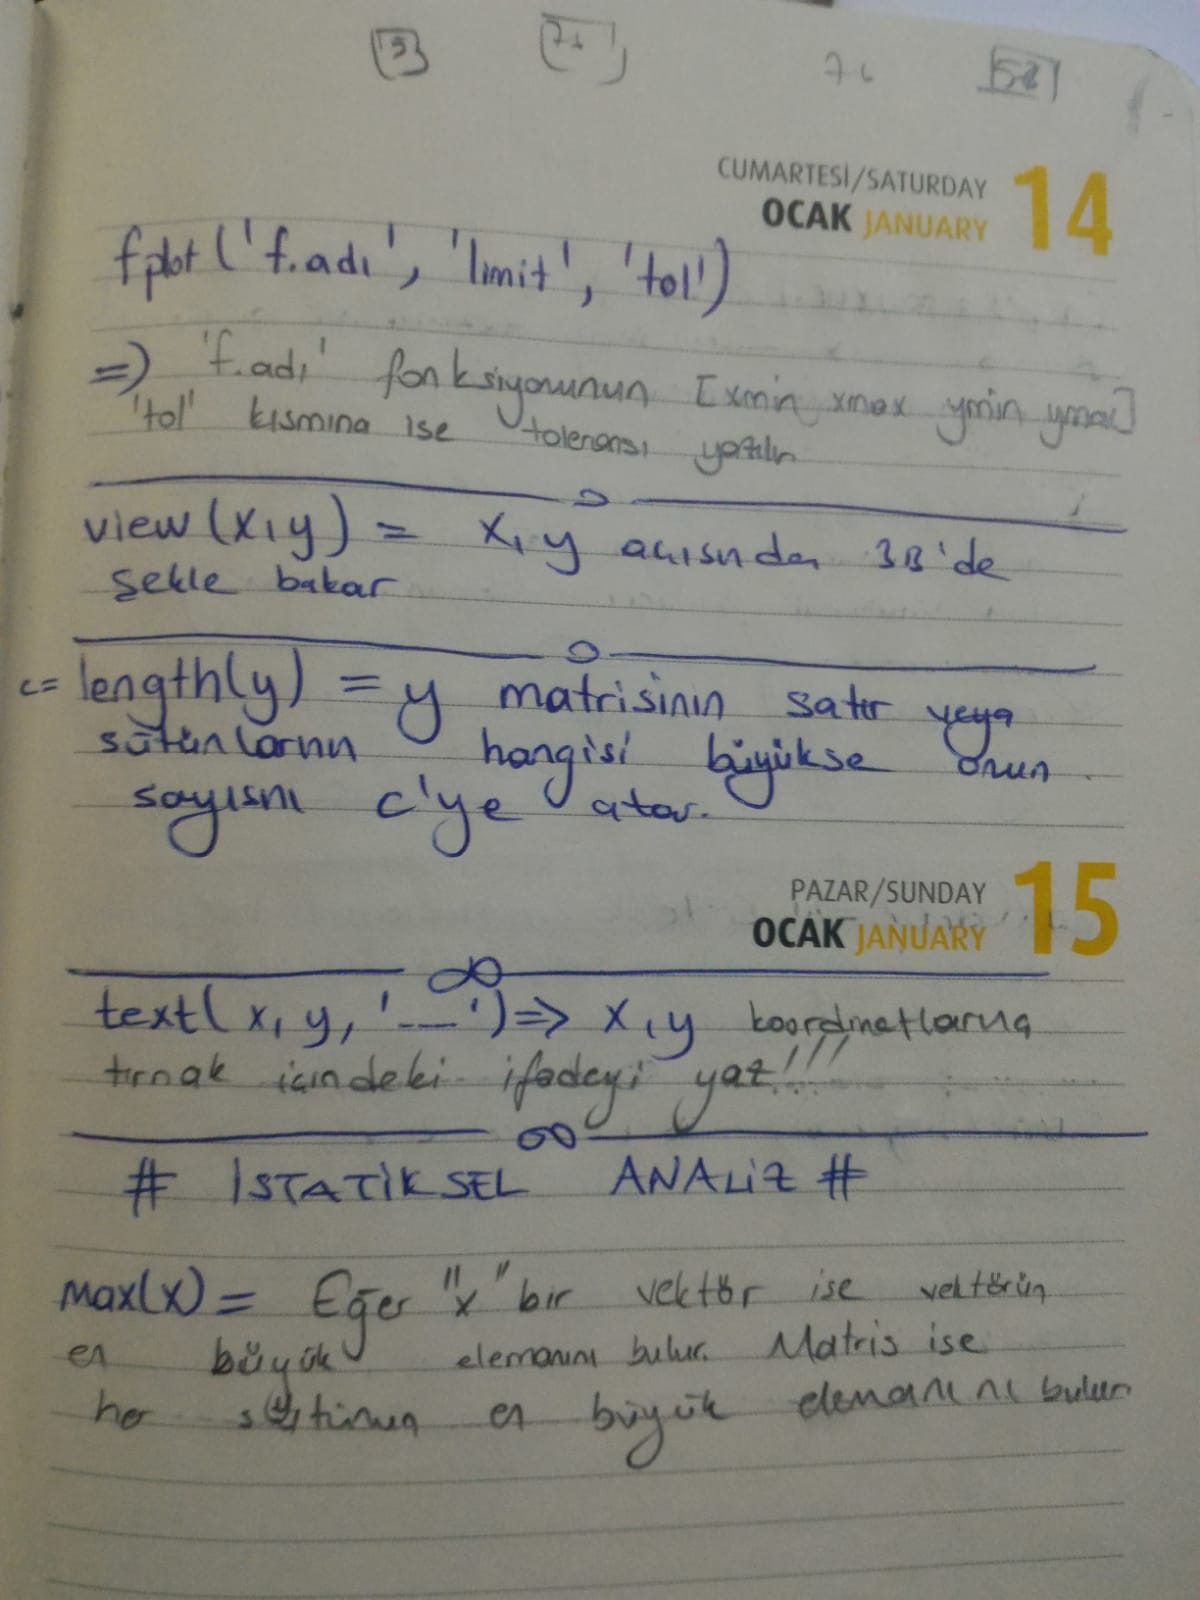 76
CUMARTESİ/SATURDAY
OCAK JANUARY 14
fplot('f.adı', 'limit', 'tol')
=) 'f.adı' fonksiyonunun [xmin xmax ymin ymax]
'tol' kısmına ise toleransı yazılır
view(x,y) = x,y açısından 3B'de
şekle bakar
c= length(y) = y matrisinin satır veya
sütunlarının hangisi büyükse onun
sayısını c'ye atar.
PAZAR/SUNDAY
OCAK JANUARY 15
text(x,y,'---')=> x,y koordinatlarına
tırnak içindeki ifadeyi yaz!!!
# İSTATİKSEL ANALİZ #
max(x) = Eğer "x" bir vektör ise vektörün
en büyük elemanını bulur. Matris ise
her sütunun en büyük elemanını bulur